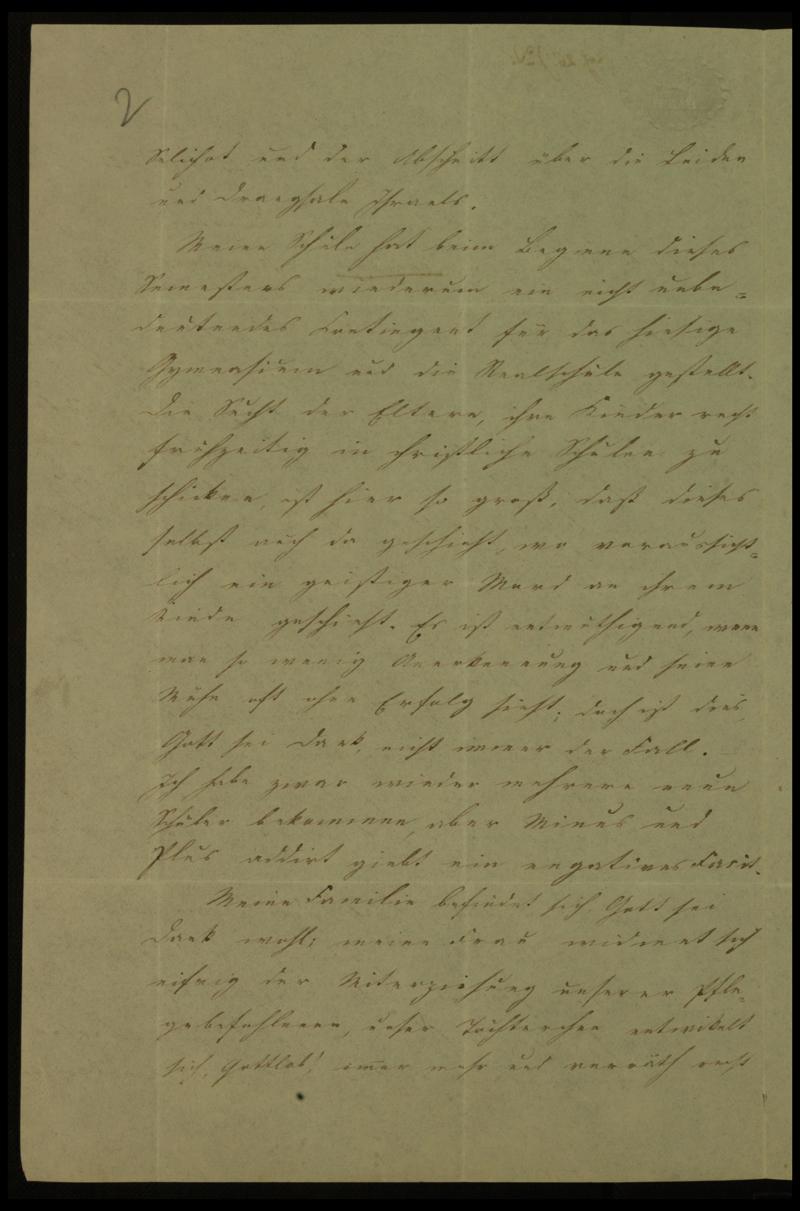 2
Selichot und der Abschnitt über die Leiden
und Drangsale Israels.
Meine Schule hat beim Beginne dieses
Semesters wiederum ein nicht unbe=
deutendes Contingent für das hiesige
Gymnasium und die Realschule gestellt.
Die Sucht der Eltern, ihre Kinder recht
frühzeitig in christliche Schulen zu
schicken, ist hier so groß, daß dieses
selbst auch da geschieht, wo voraussicht=
lich ein geistiger Mord an ihrem
Kinde geschieht. Es ist entmuthigend, wenn
man so wenig Anerkennung und seine
Mühe oft ohne Erfolg sieht; doch ist dies,
Gott sei Dank, nicht immer der Fall.
Ich habe zwar wieder mehrere neue
Schüler bekommen, aber Minus und
Plus addirt giebt ein negatives Facit.
Meine Familie befindet sich, Gott sei
Dank wohl; meine Frau widmet sich
eifrig der Miterziehung unserer Pfle=
gebefohlenen, unser Töchterchen entwickelt
sich, Gottlob! immer mehr und verräth recht